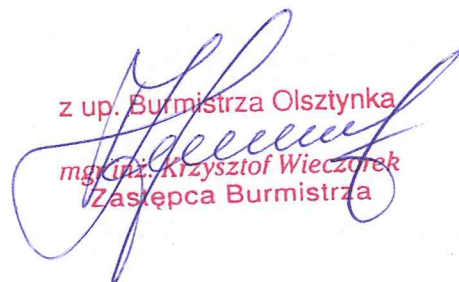 z up. Burmistrza Olsztynka
mgr inż. Krzysztof Wieczorek
Zastępca Burmistrza